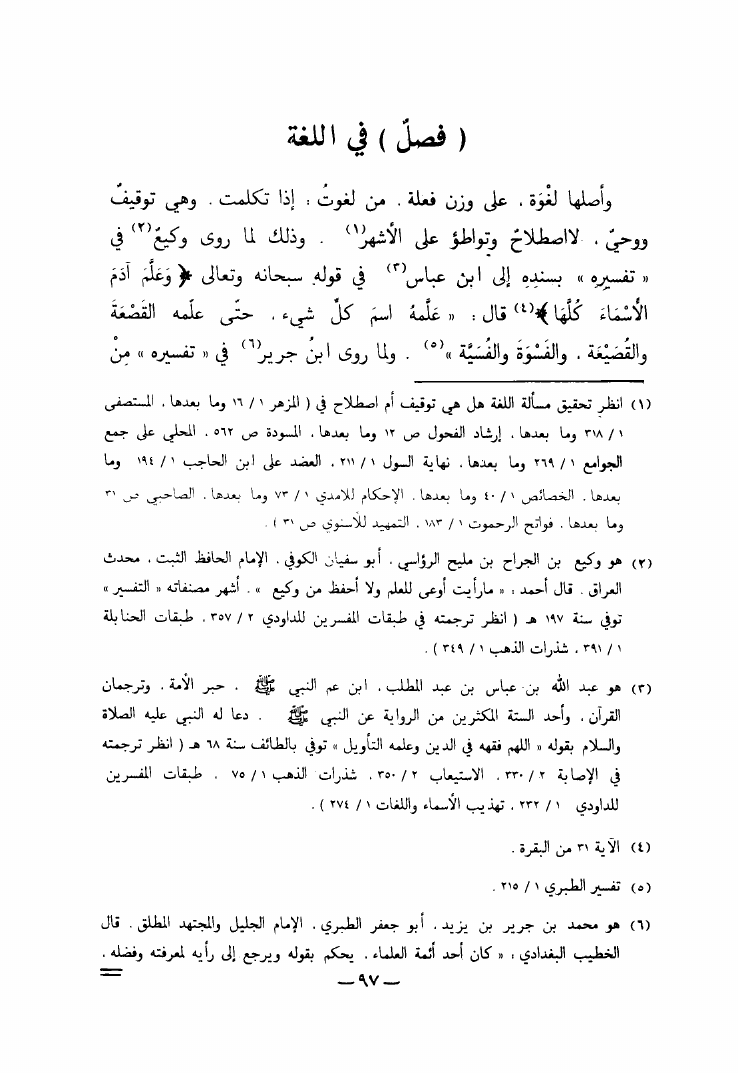 ( فصلٌ ) في اللغة
وأصلها لغْوَة ، على وزن فعلة . من لغوتُ : إذا تكلمت . وهي توقيفٌ
ووحيٌ ، لااصطلاحٌ وتواطؤ على الأشهر(١) . وذلك لما روى وكيعٌ(٢) في
« تفسيرِه » بسندِهِ إلى ابن عباس(٣) في قوله سبحانه وتعالى ﴿ وَعَلَّمَ آدَمَ
الأَسْمَاءَ كُلَّهَا ﴾(٤) قال : « علَّمهُ اسمَ كلِّ شيء ، حتّى علّمه القَصْعَةَ
والقُصَيْعَة ، والفَسْوَةَ والفُسَيَّة »(٥) . ولما روى ابنُ جرير(٦) في « تفسيره » مِنْ
(١) انظر تحقيق مسألة اللغة هل هي توقيف أم اصطلاح في ( المزهر ١ / ١٦ وما بعدها ، المستصفى
١ / ٣١٨ وما بعدها ، إرشاد الفحول ص ١٢ وما بعدها ، المسودة ص ٥٦٢ ، المحلي على جمع
الجوامع ١ / ٢٦٩ وما بعدها ، نهاية السول ١ / ٢١١ ، العضد على ابن الحاجب ١ / ١٩٤ وما
بعدها ، الخصائص ١ / ٤٠ وما بعدها ، الإحكام للآمدي ١ / ٧٣ وما بعدها ، الصاحبي ص ٣١
وما بعدها ، فواتح الرحموت ١ / ١٨٣ ، التمهيد للأسنوي ص ٣١ ) .
(٢) هو وكيع بن الجراح بن مليح الرؤاسي ، أبو سفيان الكوفي ، الإمام الحافظ الثبت ، محدث
العراق . قال أحمد : « مارأيت أوعى للعلم ولا أحفظ من وكيع » . أشهر مصنفاته « التفسير »
توفي سنة ١٩٧ هـ ( انظر ترجمته في طبقات المفسرين للداودي ٢ / ٣٥٧ ، طبقات الحنابلة
١ / ٣٩١ ، شذرات الذهب ١ / ٣٤٩ ) .
(٣) هو عبد الله بن عباس بن عبد المطلب ، ابن عم النبي ﷺ ، حبر الأمة ، وترجمان
القرآن ، وأحد الستة المكثرين من الرواية عن النبي ﷺ . دعا له النبي عليه الصلاة
والسلام بقوله « اللهم فقهه في الدين وعلمه التأويل » توفي بالطائف سنة ٦٨ هـ ( انظر ترجمته
في الإصابة ٢ / ٣٣٠ ، الاستيعاب ٢ / ٣٥٠ ، شذرات الذهب ١ / ٧٥ ، طبقات المفسرين
للداودي ١ / ٢٣٢ ، تهذيب الأسماء واللغات ١ / ٢٧٤ ) .
(٤) الآية ٣١ من البقرة .
(٥) تفسير الطبري ١ / ٢١٥ .
(٦) هو محمد بن جرير بن يزيد ، أبو جعفر الطبري ، الإمام الجليل والمجتهد المطلق . قال
الخطيب البغدادي : « كان أحد أئمة العلماء ، يحكم بقوله ويرجع إلى رأيه لمعرفته وفضله ،
— ٩٧ —